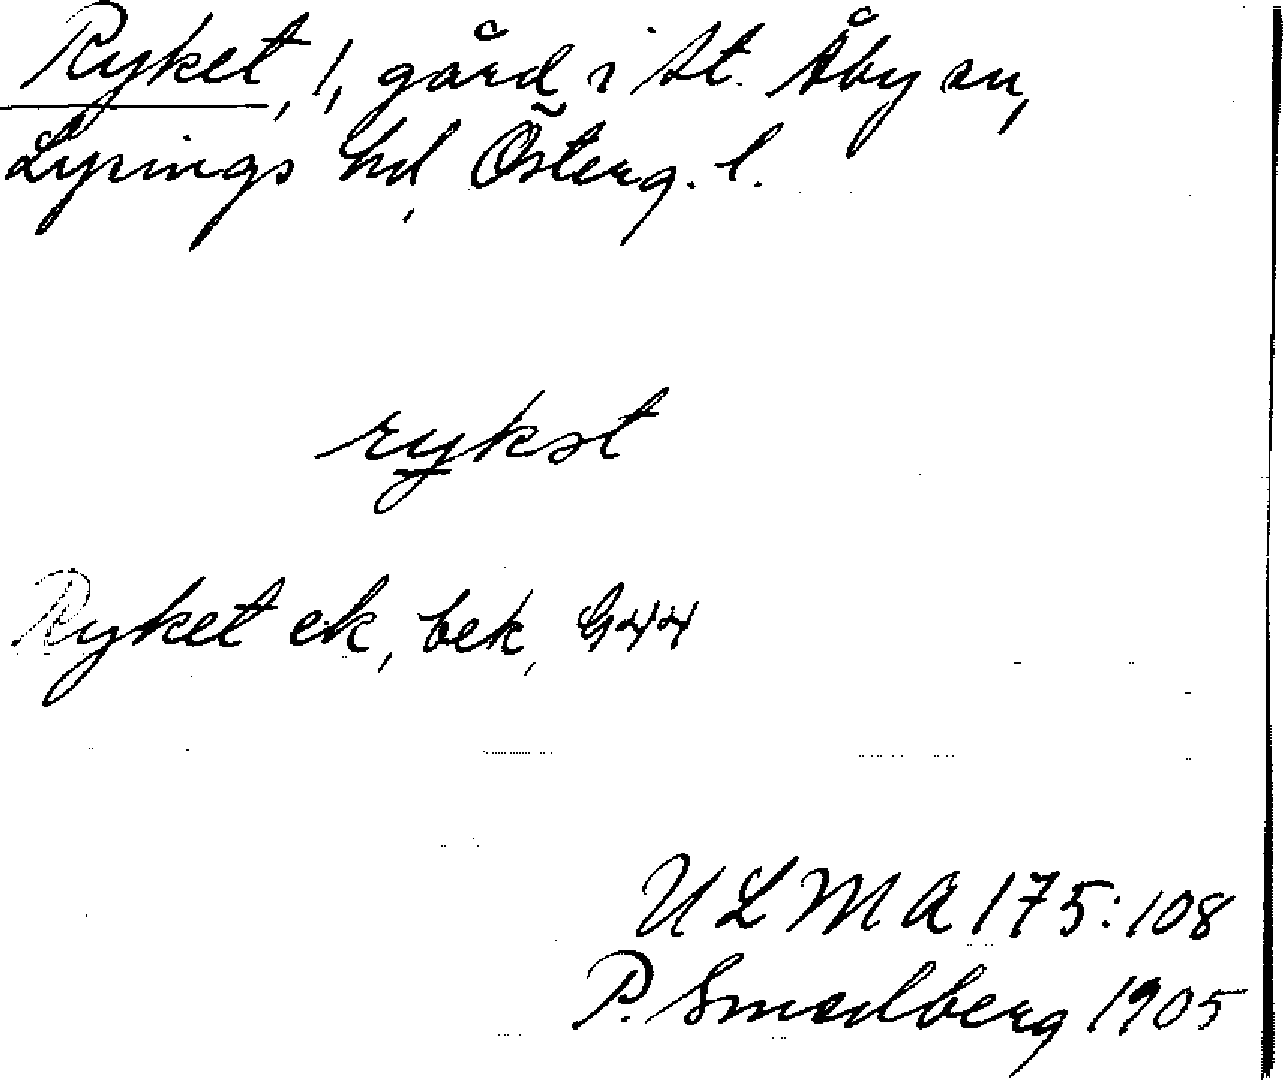 Ryket, 1, gård i St. Åby sn,
Lysings hd, Österg. l.
rykət
Ryket ek, bek, G44
ULMA 175:108
P. Smedberg 1905